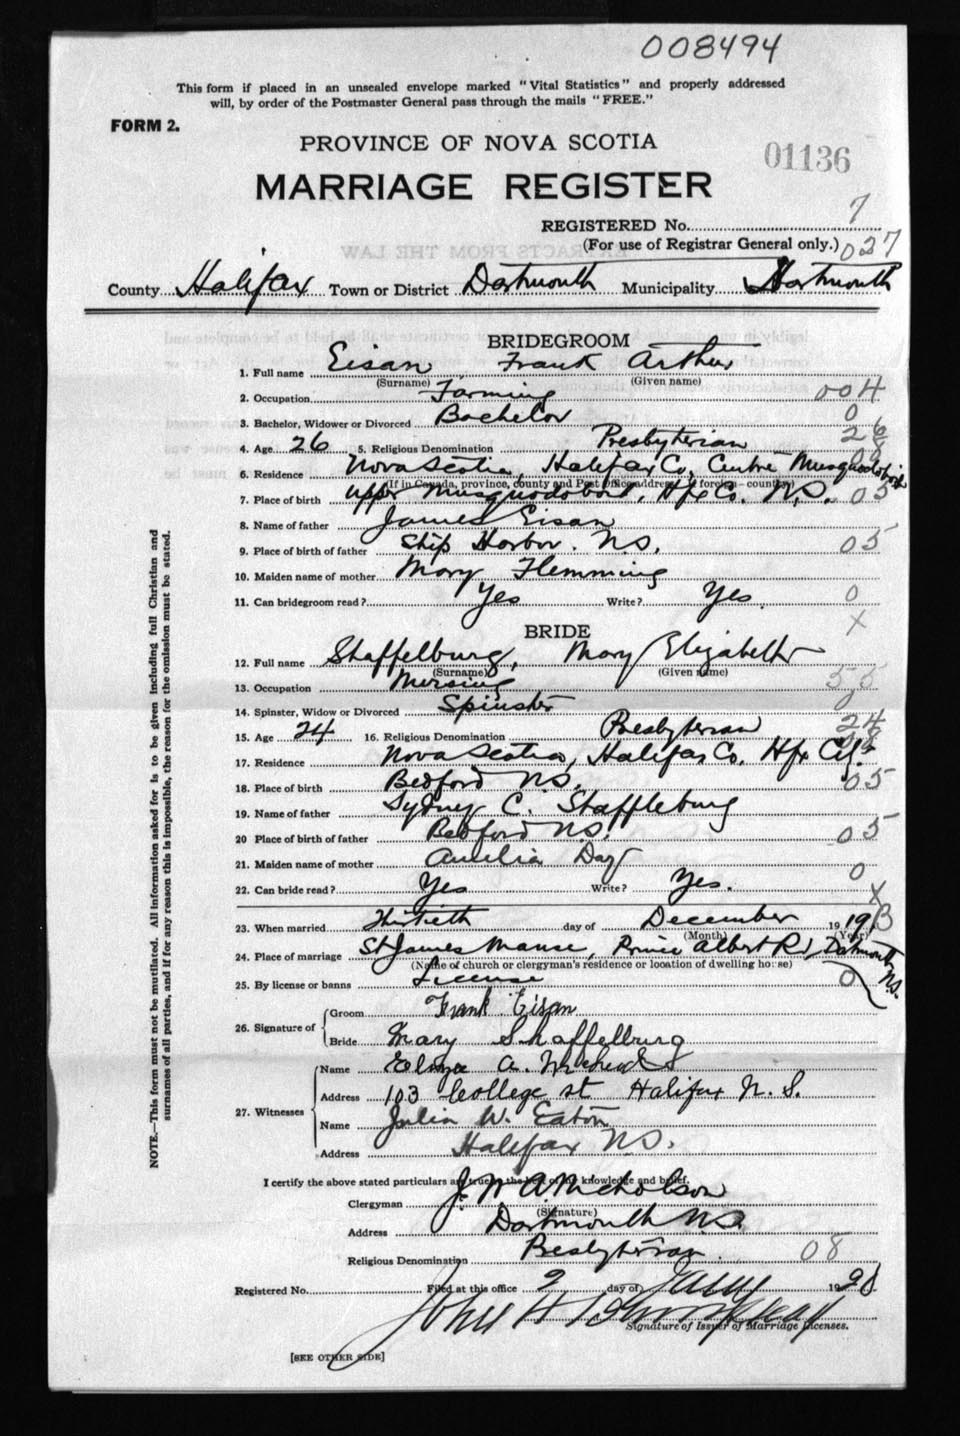 008494
This form if placed in an unsealed envelope marked "Vital Statistics" and properly addressed
will, by order of the Postmaster General pass through the mails "FREE."
FORM 2.
PROVINCE OF NOVA SCOTIA
01136
MARRIAGE REGISTER
REGISTERED No. 7
(For use of Registrar General only.) 027
County Halifax Town or District Dartmouth Municipality Dartmouth
BRIDEGROOM
1. Full name Eisan Frank Arthur
(Surname) (Given name)
2. Occupation Farming 004
3. Bachelor, Widower or Divorced Bachelor 0
4. Age 26 5. Religious Denomination Presbyterian 26
6. Residence Nova Scotia, Halifax Co, Centre Musquodoboit
(If in Canada, province, county and Post Office address, if foreign—country)
7. Place of birth Upper Musquodoboit, Hfx Co. N.S. 05
8. Name of father James Eisan
9. Place of birth of father Ship Harbor. N.S. 05
10. Maiden name of mother Mary Flemming
11. Can bridegroom read? Yes Write? Yes. 0
X
BRIDE
12. Full name Shaffelburg, Mary Elizabeth
(Surname) (Given name)
13. Occupation Nursing 55
14. Spinster, Widow or Divorced Spinster 0
15. Age 24 16. Religious Denomination Presbyterian 24
17. Residence Nova Scotia, Halifax Co. Hfx City
18. Place of birth Bedford N.S. 05
19. Name of father Sydney C. Shaffleburg
20 Place of birth of father Bedford N.S. 05
21. Maiden name of mother Amelia Day
22. Can bride read? Yes Write? Yes. 0
X
23. When married Thirtieth day of December 19 19
(Month) (Year)
24. Place of marriage St James Manse, Prince Albert Rd, Dartmouth N.S.
(Name of church or clergyman's residence or location of dwelling house)
25. By license or banns License 0
26. Signature of Groom Frank Eisan
Bride Mary Shaffelburg
27. Witnesses Name A.
Address 103 College st Halifax N. S.
Name Julia W. Eaton
Address Halifax N.S.
I certify the above stated particulars are true to the best of my knowledge and belief.
Clergyman J. W. A. Nicholson
(Signature)
Address Dartmouth N.S.
Religious Denomination Presbyterian 08
Registered No. Filed at this office 2 day of Jany 19 20
John H
Signature of Issuer of Marriage Licenses.
[SEE OTHER SIDE]
NOTE.—This form must not be mutilated. All information asked for is to be given including full Christian and
surnames of all parties, and if for any reason this is impossible, the reason for the omission must be stated.